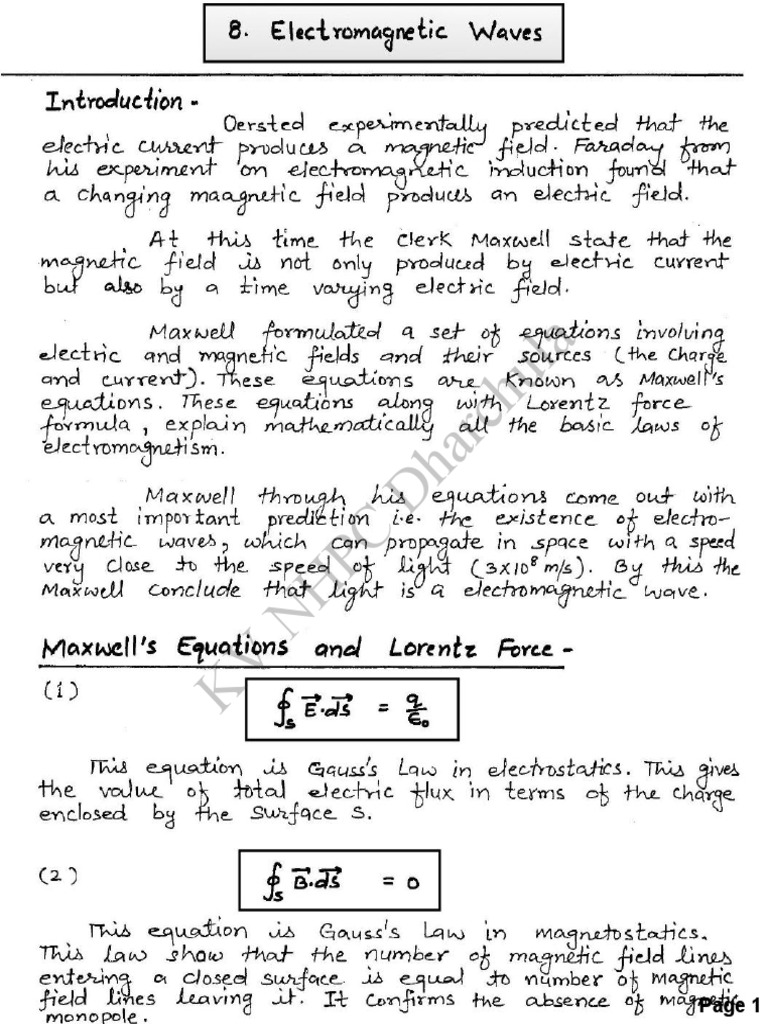 8. Electromagnetic Waves
Introduction -
Oersted experimentally predicted that the
electric current produces a magnetic field. Faraday from
his experiment on electromagnetic induction found that
a changing maagnetic field produces an electric field.
At this time the Clerk Maxwell state that the
magnetic field is not only produced by electric current
but also by a time varying electric field.
Maxwell formulated a set of equations involving
electric and magnetic fields and their sources (the charge
and current). These equations are known as Maxwell's
equations. These equations along with Lorentz force
formula, explain mathematically all the basic laws of
electromagnetism.
Maxwell through his equations come out with
a most important prediction i.e. the existence of electro-
magnetic waves, which can propagate in space with a speed
very close to the speed of light (3×10⁸ m/s). By this the
Maxwell conclude that light is a electromagnetic wave.
Maxwell's Equations and Lorentz Force -
(1) ∮ₛ E⃗·d⃗s = q/ε₀
This equation is Gauss's Law in electrostatics. This gives
the value of total electric flux in terms of the charge
enclosed by the surface S.
(2) ∮ₛ B⃗·d⃗s = 0
This equation is Gauss's Law in magnetostatics.
This law show that the number of magnetic field lines
entering a closed surface is equal to number of magnetic
field lines leaving it. It confirms the absence of magnetic
monopole.
Page 1
KV NHPC Dharchula